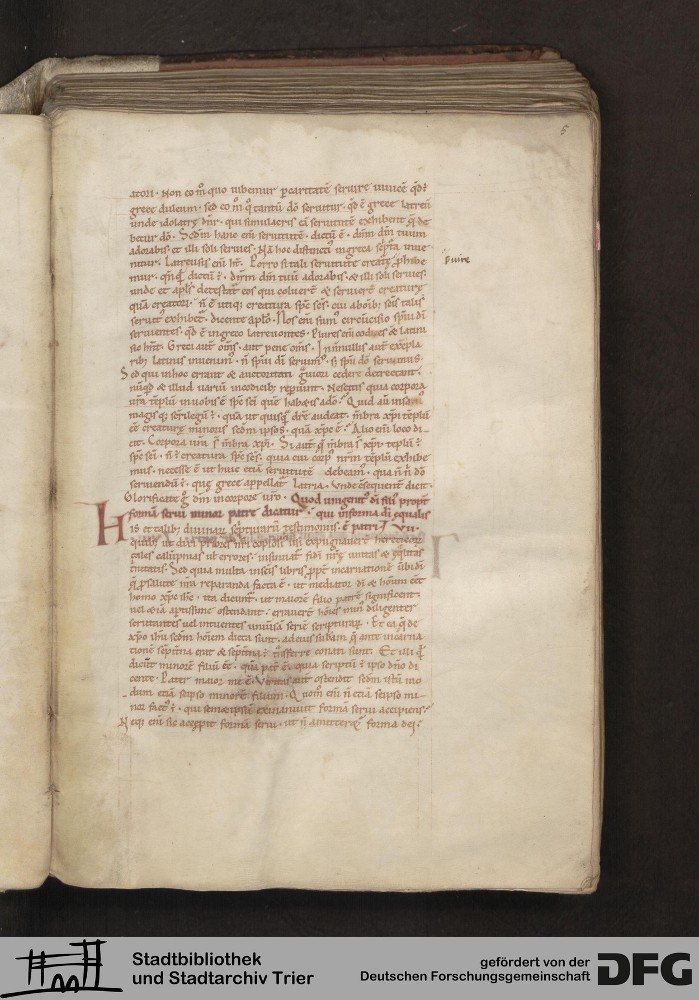 5
atori. Non eo m̄ quo iubemur p caritatē seruire inuicē qd̄
grece duleuin. sed eo m̄ q̊ tantū dō seruitur. qd̄ ē grece latreu
unde idolatre dnr̄. qui simulacris eā seruitutē exhibent q̄ de
betur dō. Sedm̄ hanc eni seruitutē. dictū ē. dn̄m dm̄ tuum
adorabis. et illi soli seruies. Nā hoc distincti in greca sc̄pta inue
nitur. Latreusis eni ht̄. Porro si tali seruitute creatur̄ p̄hibe
mur. qn̄q̄ dictū ē. dn̄m dm̄ tuū adorabis. & illi soli seruies.
unde et apl̄s detestat̄ eos qui coluerē & seruierē creature
quā creatori. n̄ ē utiq; creatura sp̄c sc̄s. cui ab oib; sc̄is talis
seruit̄ exhibet̄. dicente aplō. Nos eni sum circūcisio sp̄ui di
seruientes. qd̄ ē in greco latreuontes. Plures eni codices & latini
sic hn̄t. Greci aut̄ om̄s. aut pene om̄s. In nnullis aut̄ exēpla
rib; latinis inuenim̄. n̄ sp̄ui di seruim̄. s; sp̄u dō seruimus.
Sed qui in hoc errant & auctoritati g̊uiori cedere detrectant.
nūqd̄ & illud uariū in codicib; repiunt. Nescitis quia corpora
ur̄a tēplū in uobis ē sp̄c sc̄i quē habetis a dō. Quid aū
magisq; sacrilegū ē. quā ut quisq̄ dr̄e audeat. mēbra xp̄i tēplū
eē creature minoris sedm̄ ipsos. quā xp̄c ē. Alio eni loco di
cit. Corpora ur̄a s̄ mēbra xp̄i. Si aut̄ q̄ mēbra s̄ xp̄i tēplū ē
sp̄c sc̄i. n̄ ē creatura sp̄c sc̄s. quia cui corp̄ nr̄m tēplū exhibe
mus. necesse ē ut huic eciā seruitutē debeam̄. qua n̄ n̄ dō
seruiendū ē. que grece appellat̄ latria. Vnde cōsequent̄ dicit.
Glorificate g̊ dm̄ in corpore ur̄o. Quod unigenit̄ di fili̅ propt̄
formā serui minor patre dicatur. qui in forma di equalis
ē patri. I Vn
His et talib; diuinar̄ sc̄pturarū testimoniis.
quib; ut dixi priores nr̄i copiosi usi expugnauerē hereticor̄
tales calūpnias ut errores. insinuat̄ fidi nr̄e unitas & eq̄litas
trinitatis. Sed quia multa in sc̄is libris p̄pt̄ incarnationē ubi di
q̄ p salute nr̄a reparanda facta ē. ut mediator di & hoīum eēt
homo xp̄c ihc̄. ita dicunt̄. ut maiorē filio patrē significent.
uel eciā aptissime ostendant. errauerē hoīes min̄ diligenter
scrutantes uel intuentes uniūsā seriē scripturar̄. Et ea q̄ de
xp̄o ihu̅ sedm̄ hoīem dicta sunt. ad eius subām q̄ ante incarna
tionē sēpit̄na erat & sēpit̄na ē. t̄nsferre conati sunt. Et illi q̄
dicūt minorē filiū eē. quā pat̄ ē. quia scriptū ē ipso dn̄o di
cente. Pater maior me ē. Veritas aut̄ ostendit sedm̄ istū mo
dum etiā seipso minorē filium. Quom̄ eni n̄ etiā seipso mi
nor fact̄ ē. qui semetipsū exinaniuit formā serui accipiens.
Neq; eni sic accepit formā serui. ut n̄ amitteret formā dei.
seruire
Stadtbibliothek
und Stadtarchiv Trier
gefördert von der
Deutschen Forschungsgemeinschaft
DFG